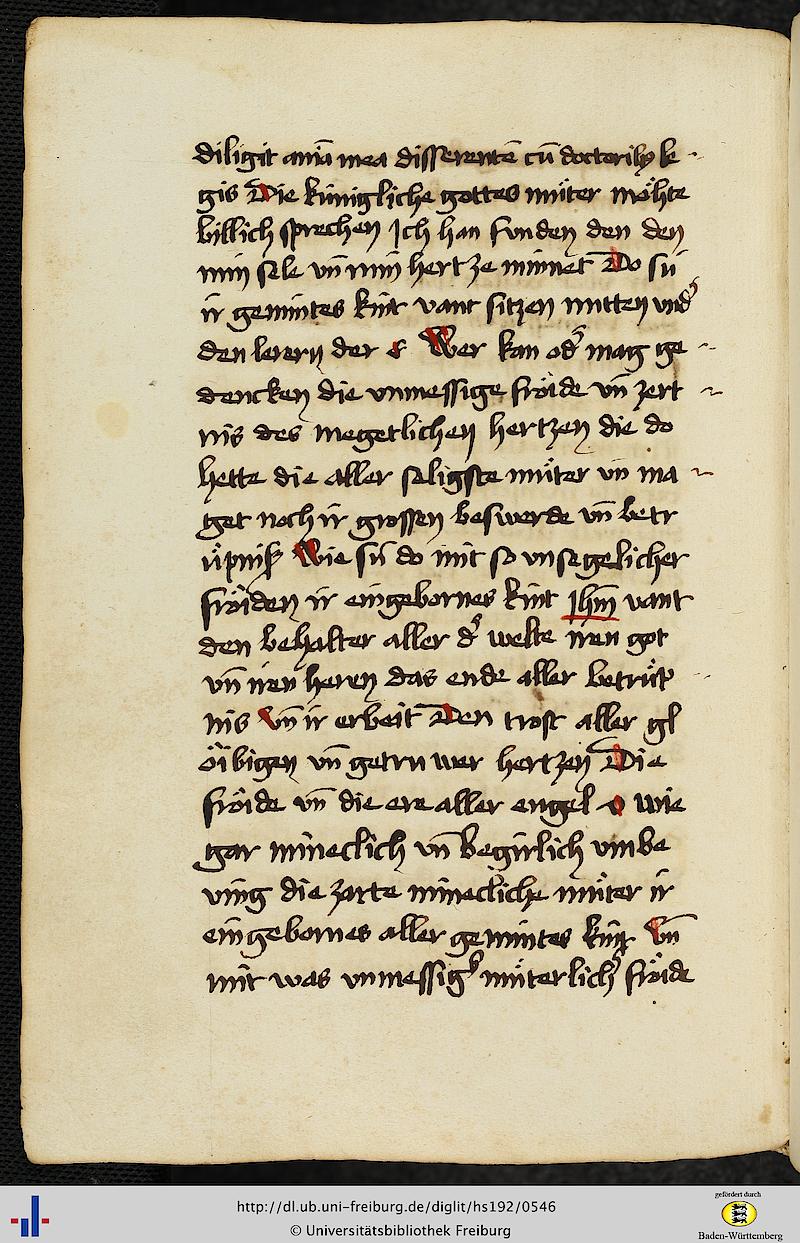 diligit aīam mea disserentē cū doctoribꝫ le
gis Die kúnigliche gottes můter mo̊hte
billich sprechen Ich han funden den den
min sele vn̄ min hertze minnet Do sú
ir gemintes kint vant sitzen mitten vnd᷒
den lerern der e Wer kan od᷒ mag ge
dencken die vnmessige fro̊ide vn̄ zert
nis des megetlichen hertzen die do
hette die aller seligste můter vn̄ ma
get noch ir grossen beswerde vn̄ betr
u̇pniß Wie sú do mit so vnsegelicher
fro̊iden ir eingebornes kint Ihm̄ vant
den behalter aller d᷒ welte iren got
vn̄ iren heren das ende aller betru̇p
nis Vn̄ ir erbeit Den trost aller gl
o̊ibigen vn̄ getruwer hertzen Die
fro̊ide vn̄ die ere aller engel o wie
gar mineclich vn̄ begirlich vmbe
ving die zarte minecliche můter ir
eingebornes aller gemintes kint Vn̄
mit was vnmessig᷒ můterlich᷒ fro̊ide
http://dl.ub.uni-freiburg.de/diglit/hs192/0546
© Universitätsbibliothek Freiburg
gefördert durch
Baden-Württemberg